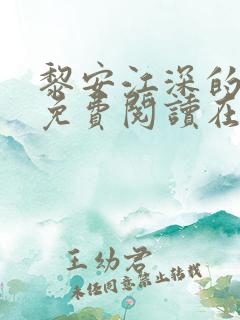 黎安江深的
免費閱讀在
王幼君
未經同意禁止轉載